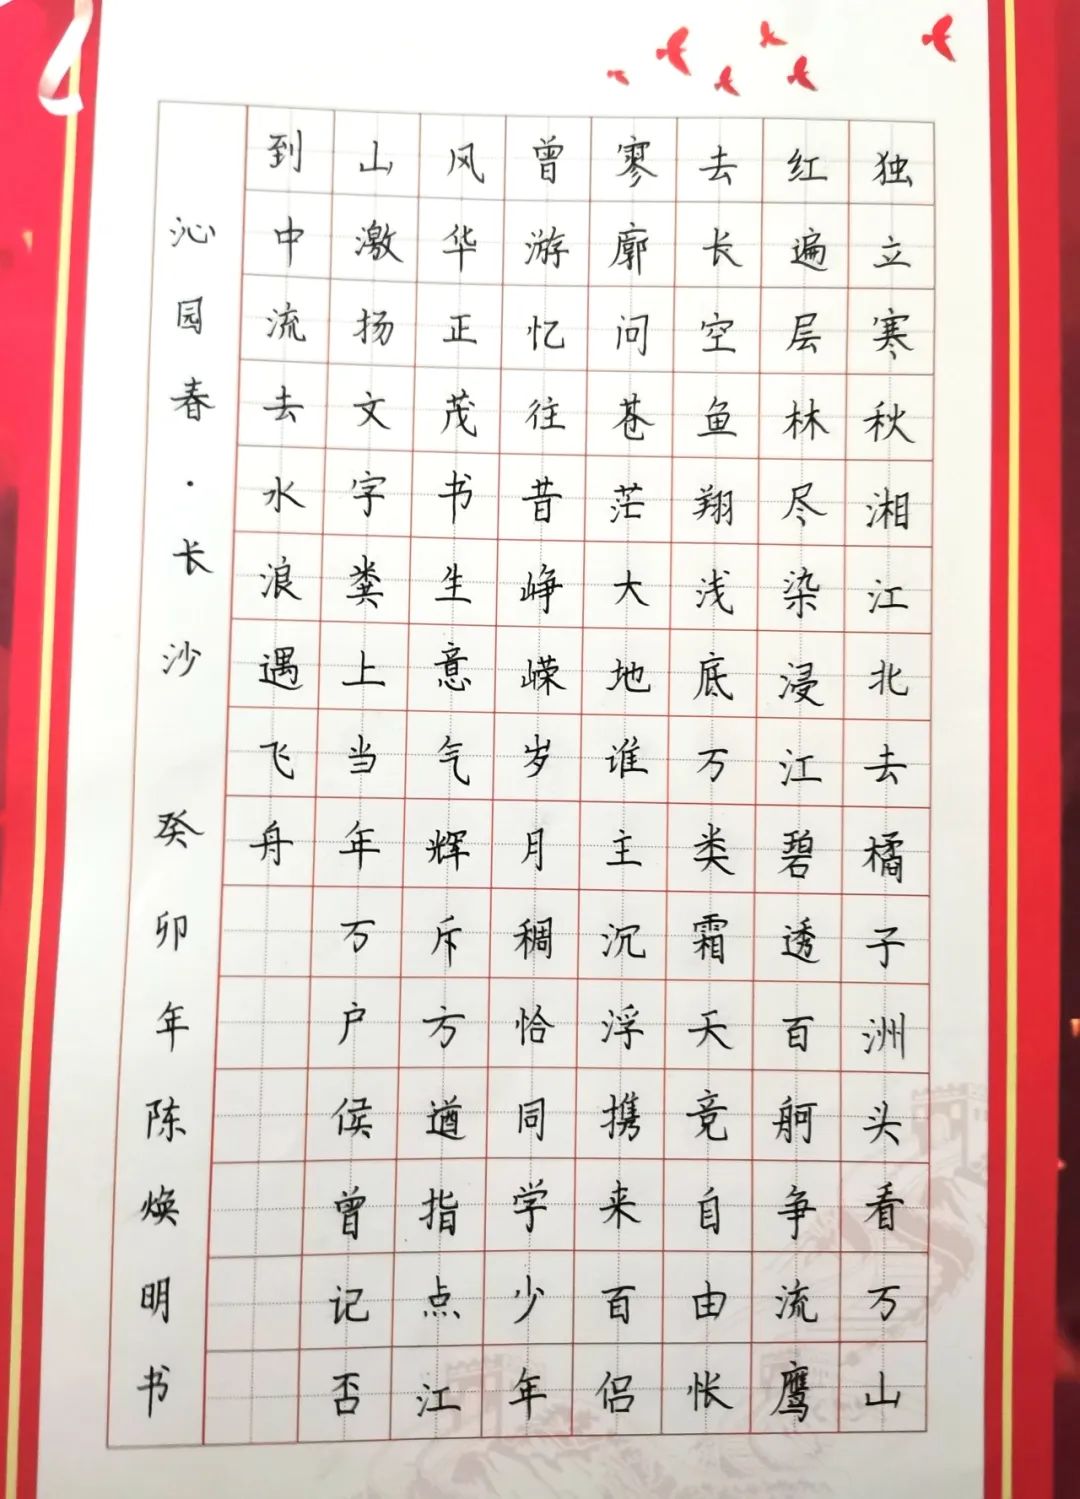 独立寒秋湘江北去橘子洲头看万山
红遍层林尽染浸江碧透百舸争流鹰
去长空鱼翔浅底万类霜天竟自由怅
寥廓问苍茫大地谁主沉浮携来百侣
曾游忆往昔峥嵘岁月稠恰同学少年
风华正茂书生意气辉斥方遒指点江
山激扬文字粪上当年万户侯曾记否
到中流去水浪遇飞舟
沁园春·长沙 癸卯年陈焕明书